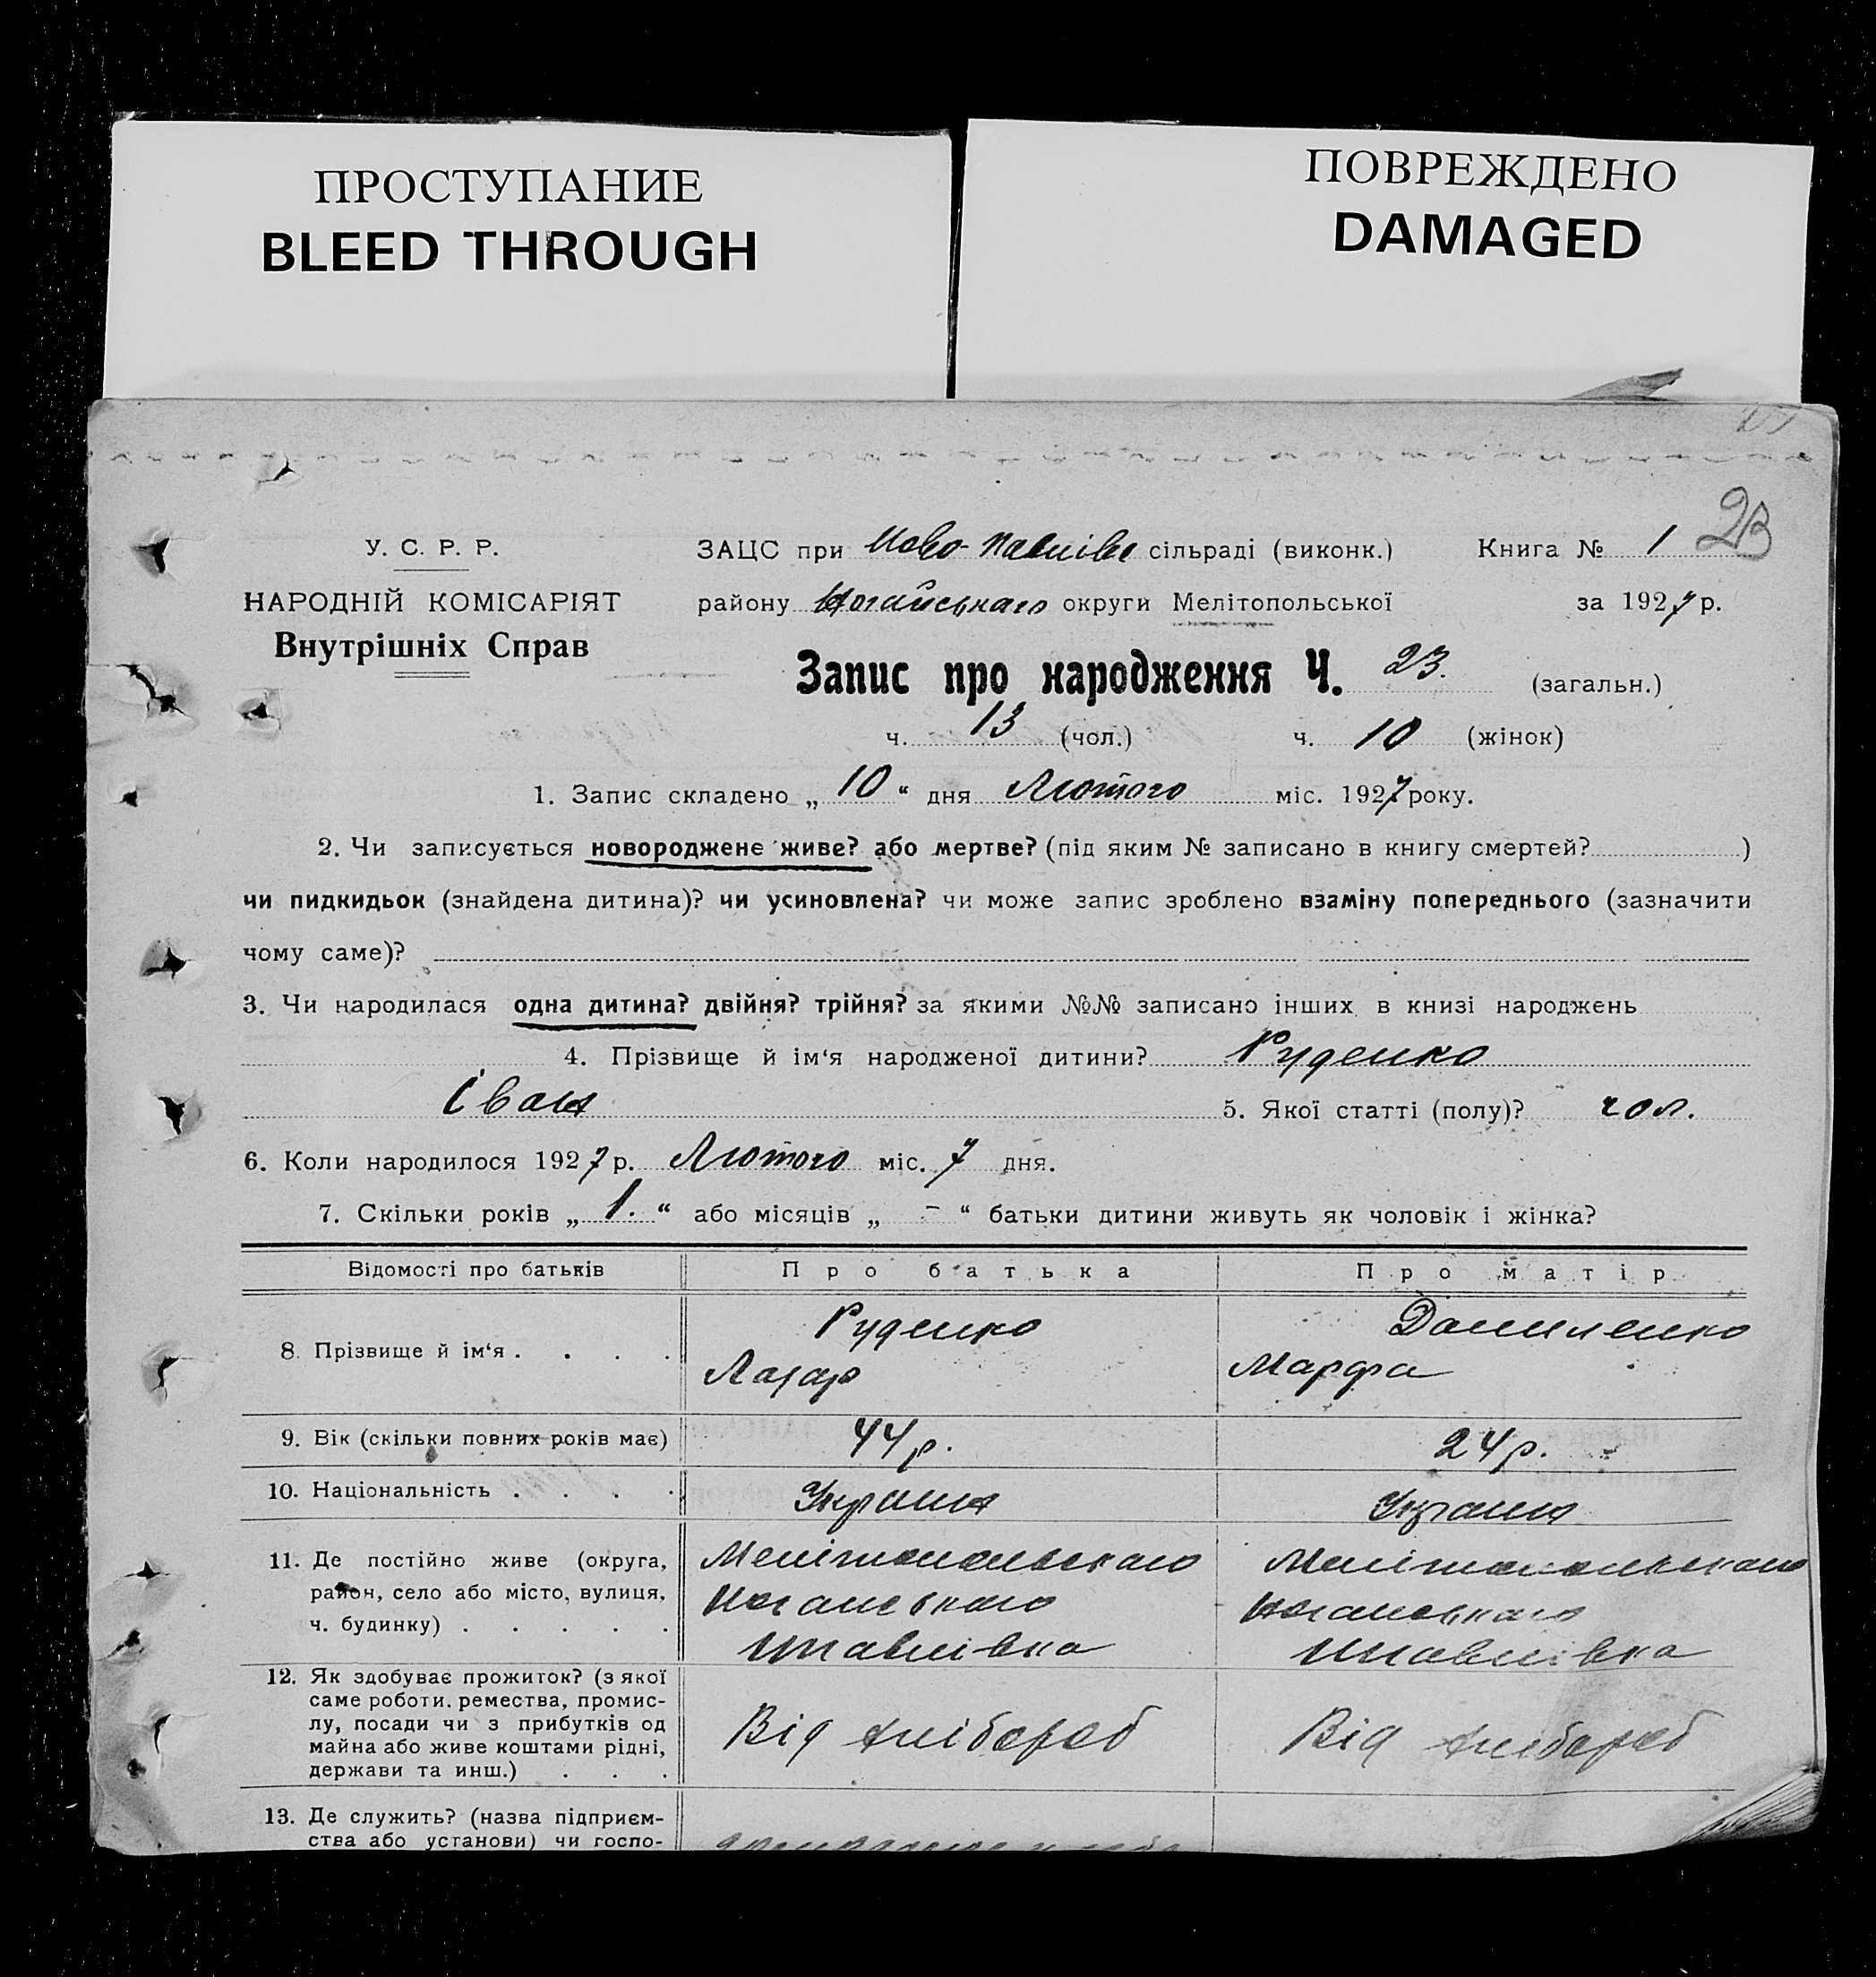 ПРОСТУПАНИЕ
BLEED THROUGH
ПОВРЕЖДЕНО
DAMAGED
23
У. С. Р. Р.
НАРОДНІЙ КОМІСАРІЯТ
Внутрішніх Справ
ЗАЦС при Ново-Павлівс сільраді (виконк.) Книга № 1
району Ногайського округи Мелітопольської за 1927 р.
Запис про народження Ч. 23. (загальн.)
ч. 13 (чол.) ч. 10 (жінок)
1. Запис складено „ 10 “ дня Лютого міс. 1927 року.
2. Чи записується новороджене живе? або мертве? (під яким № записано в книгу смертей? )
чи пидкидьок (знайдена дитина)? чи усиновлена? чи може запис зроблено взаміну попереднього (зазначити
чому саме)?
3. Чи народилася одна дитина? двійня? трійня? за якими №№ записано інших в книзі народжень
4. Прізвище й ім‘я народженої дитини? Руденко
Іван 5. Якої статті (полу)? чол.
6. Коли народилося 1927 р. Лютого міс. 7 дня.
7. Скільки років „ 1. “ або місяців „ - “ батьки дитини живуть як чоловік і жінка?
Відомості про батьків Про батька Про матір
8. Прізвище й ім‘я . . . . Руденко Даниленко
Лазар Марфа
9. Вік (скільки повних років має) 44 р. 24 р.
10. Національність . . . . Україн Україн
11. Де постійно живе (округа, Мелітопольського Мелітопольського
район, село або місто, вулиця, Ногайського Ногайського
ч. будинку) . . . . .
12. Як здобуває прожиток? (з якої
саме роботи, ремества, промис-
лу, посади чи з прибутків од Від хлібороб Від хлібороб
майна або живе коштами рідні,
держави та инш.) . . .
13. Де служить? (назва підприєм-
ства або установи) чи госпо-